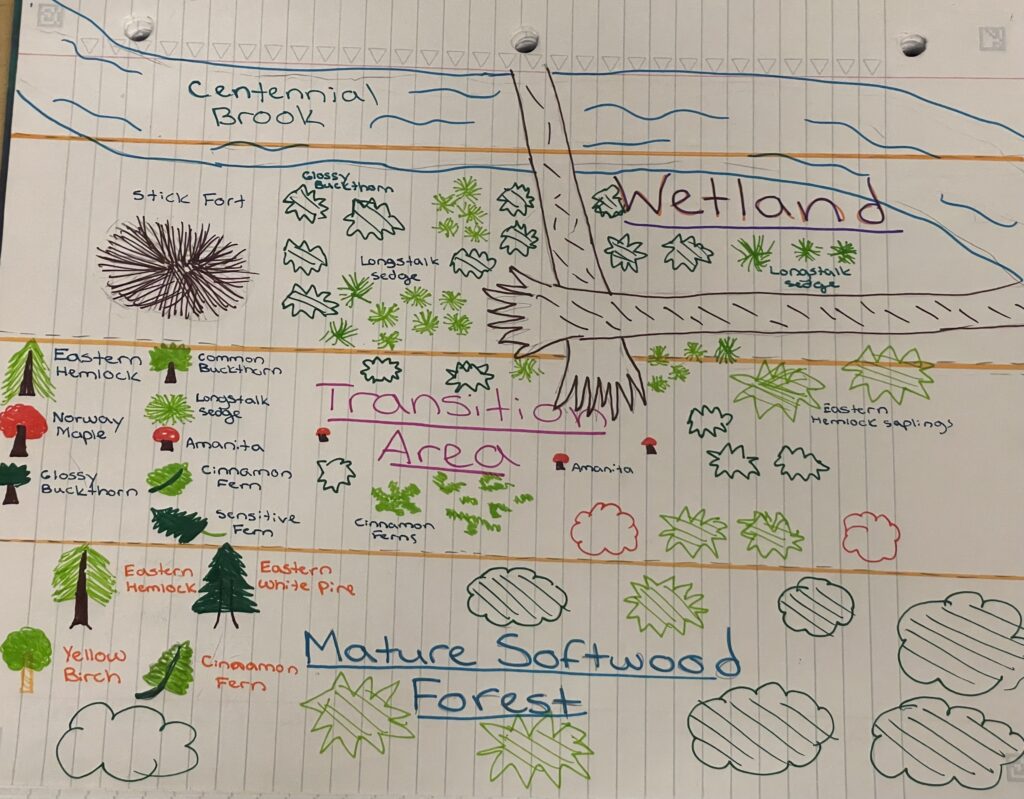 Centennial
Brook
Stick Fort
Glossy
Buckthorn
Longstalk
sedge
Wetland
Longstalk
sedge
Eastern
Hemlock
Common
Buckthorn
Norway
Maple
Longstalk
sedge
Amanita
Glossy
Buckthorn
Cinnamon
Fern
Sensitive
Fern
Transition
Area
Cinnamon
Ferns
Amanita
Eastern
Hemlock saplings
Eastern
Hemlock
Eastern
White Pine
Yellow
Birch
Cinnamon
Fern
Mature Softwood
Forest